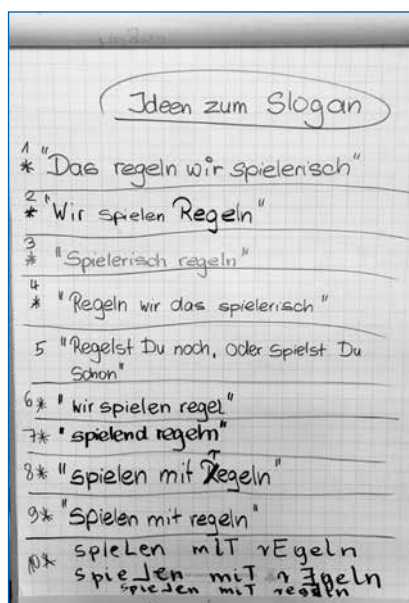 Ideen zum Slogan
1 * "Das regeln wir spielerisch"
2 * "Wir spielen Regeln"
3 * "Spielerisch regeln"
4 * "Regeln wir das spielerisch"
5 "Regelst Du noch, oder spielst Du
schon"
6* "wir spielen regel"
7* "spielend regeln"
8* "spielen mit Regeln"
9* "spielen mit regeln"
10* spieLen miT rEgeln
spielen miT rEgeln
spielen miT regeln